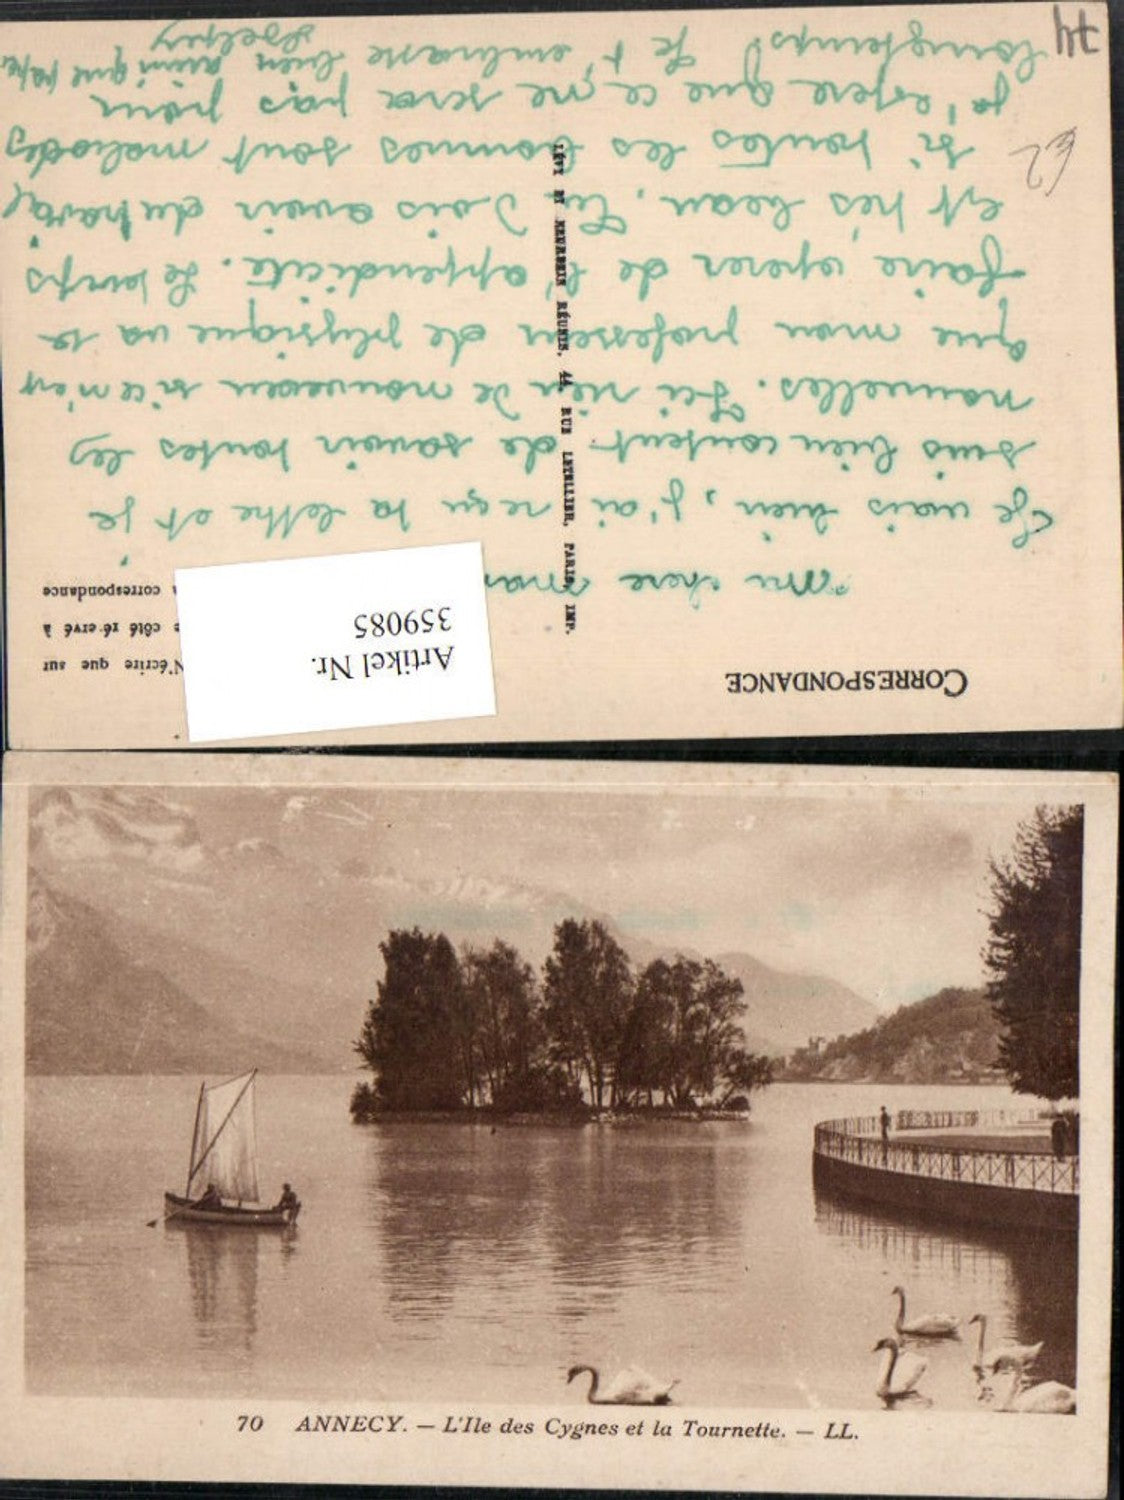 CORRESPONDANCE
N'écrire que sur
e côté réservé à
correspondance
Artikel Nr.
359085
Ma chere
Je vais bien, j'ai reçu ta lettre et je
suis bien content de savoir toutes les
nouvelles. J'ai rien de nouveau si ce n'est
que mon professeur de physique va se
faire operer de l'appendicite. Le temps
est très beau. Tu dois avoir du travail
si toutes les bonnes sont malades
j'espere que ce ne sera pas pour
longtemps. Je t'embrasse bien ainsi que
LÉVY ET NEURDEIN RÉUNIS, 44, RUE LETELLIER, PARIS, IMP.
74
70 ANNECY. — L'Ile des Cygnes et la Tournette. — LL.